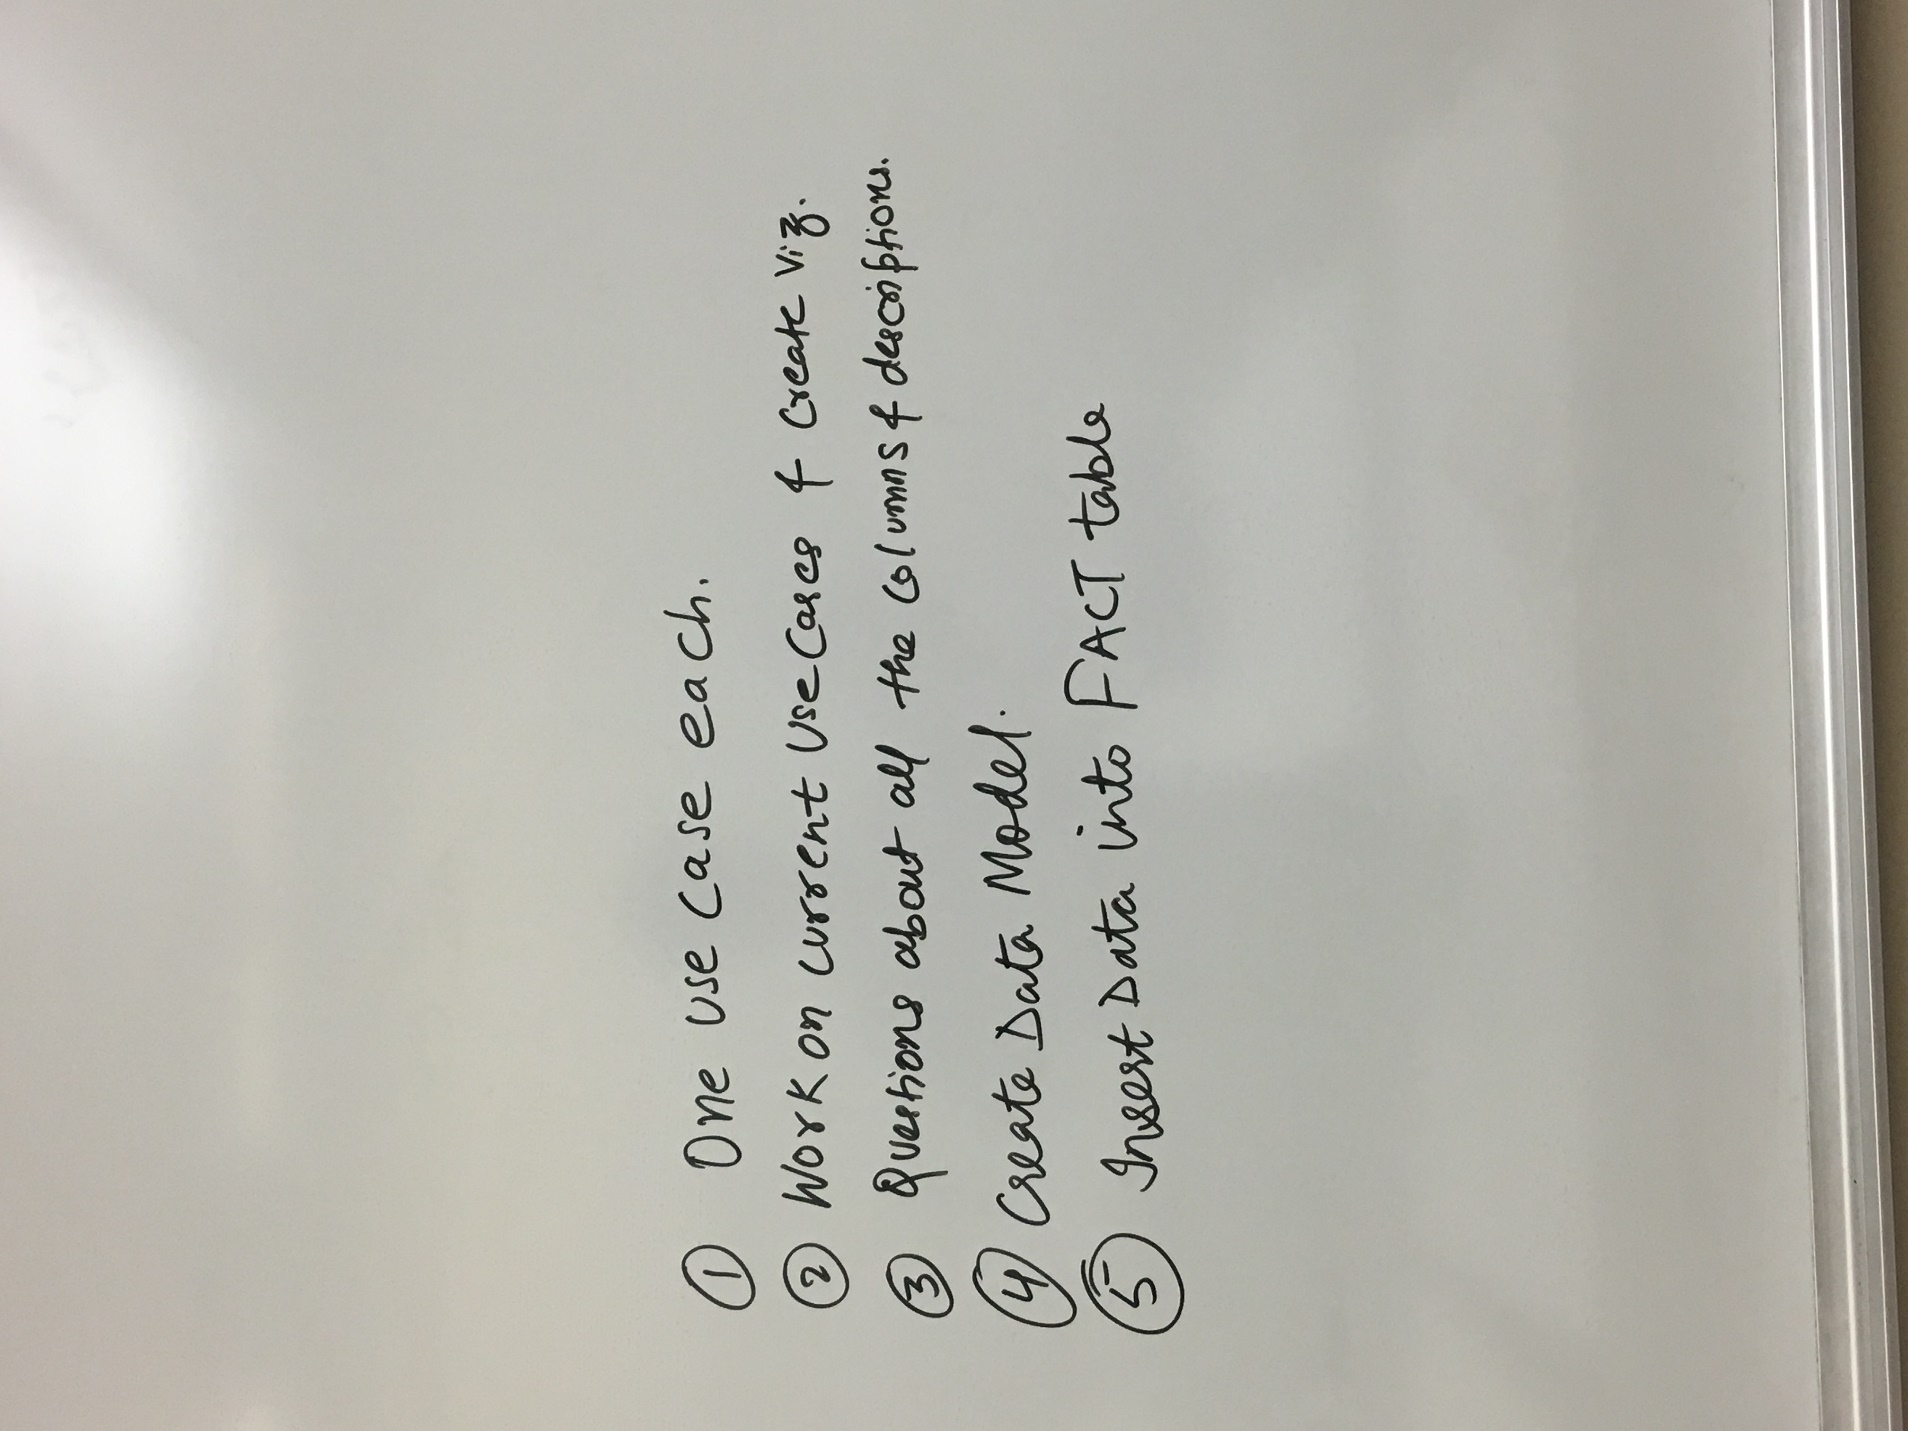 ① One use case each.
② Work on current use cases & create viz.
③ Questions about all the columns & descriptions.
④ Create Data Model.
⑤ Insert Data into FACT table